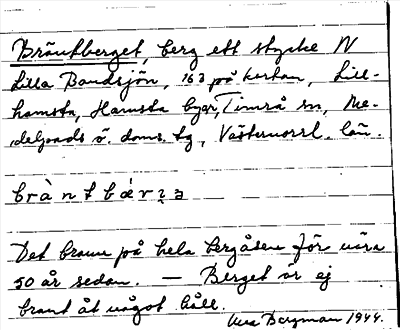 Bräntberget, berg ett stycke N
Lilla Bandsjön, 163 på kartan, Lill-
hamsta, Hamsta byar, Timrå sn, Me-
delpads ö. doms. tg, Västernorrl. län.
bràntbærʒə
Det brann på hela bergåsen för nära
50 år sedan. — Berget är ej
brant åt något håll.
Bergman 1944.